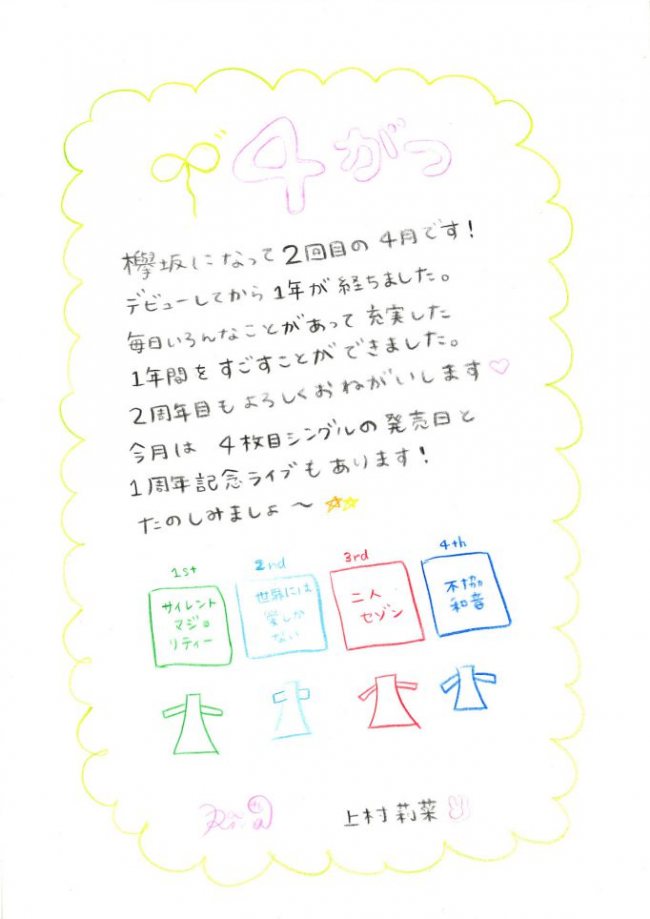 4がつ
欅坂になって2回目の4月です!
デビューしてから1年が経ちました。
毎日いろんなことがあって充実した
1年間をすごすことができました。
2周年目もよろしくおねがいします♡
今月は 4枚目シングルの発売日と
1周年記念ライブもあります!
たのしみましょ〜
1st
サイレント
マジョ
リティー
2nd
世界には
愛しか
ない
3rd
二人
セゾン
4th
不協
和音
上村莉菜